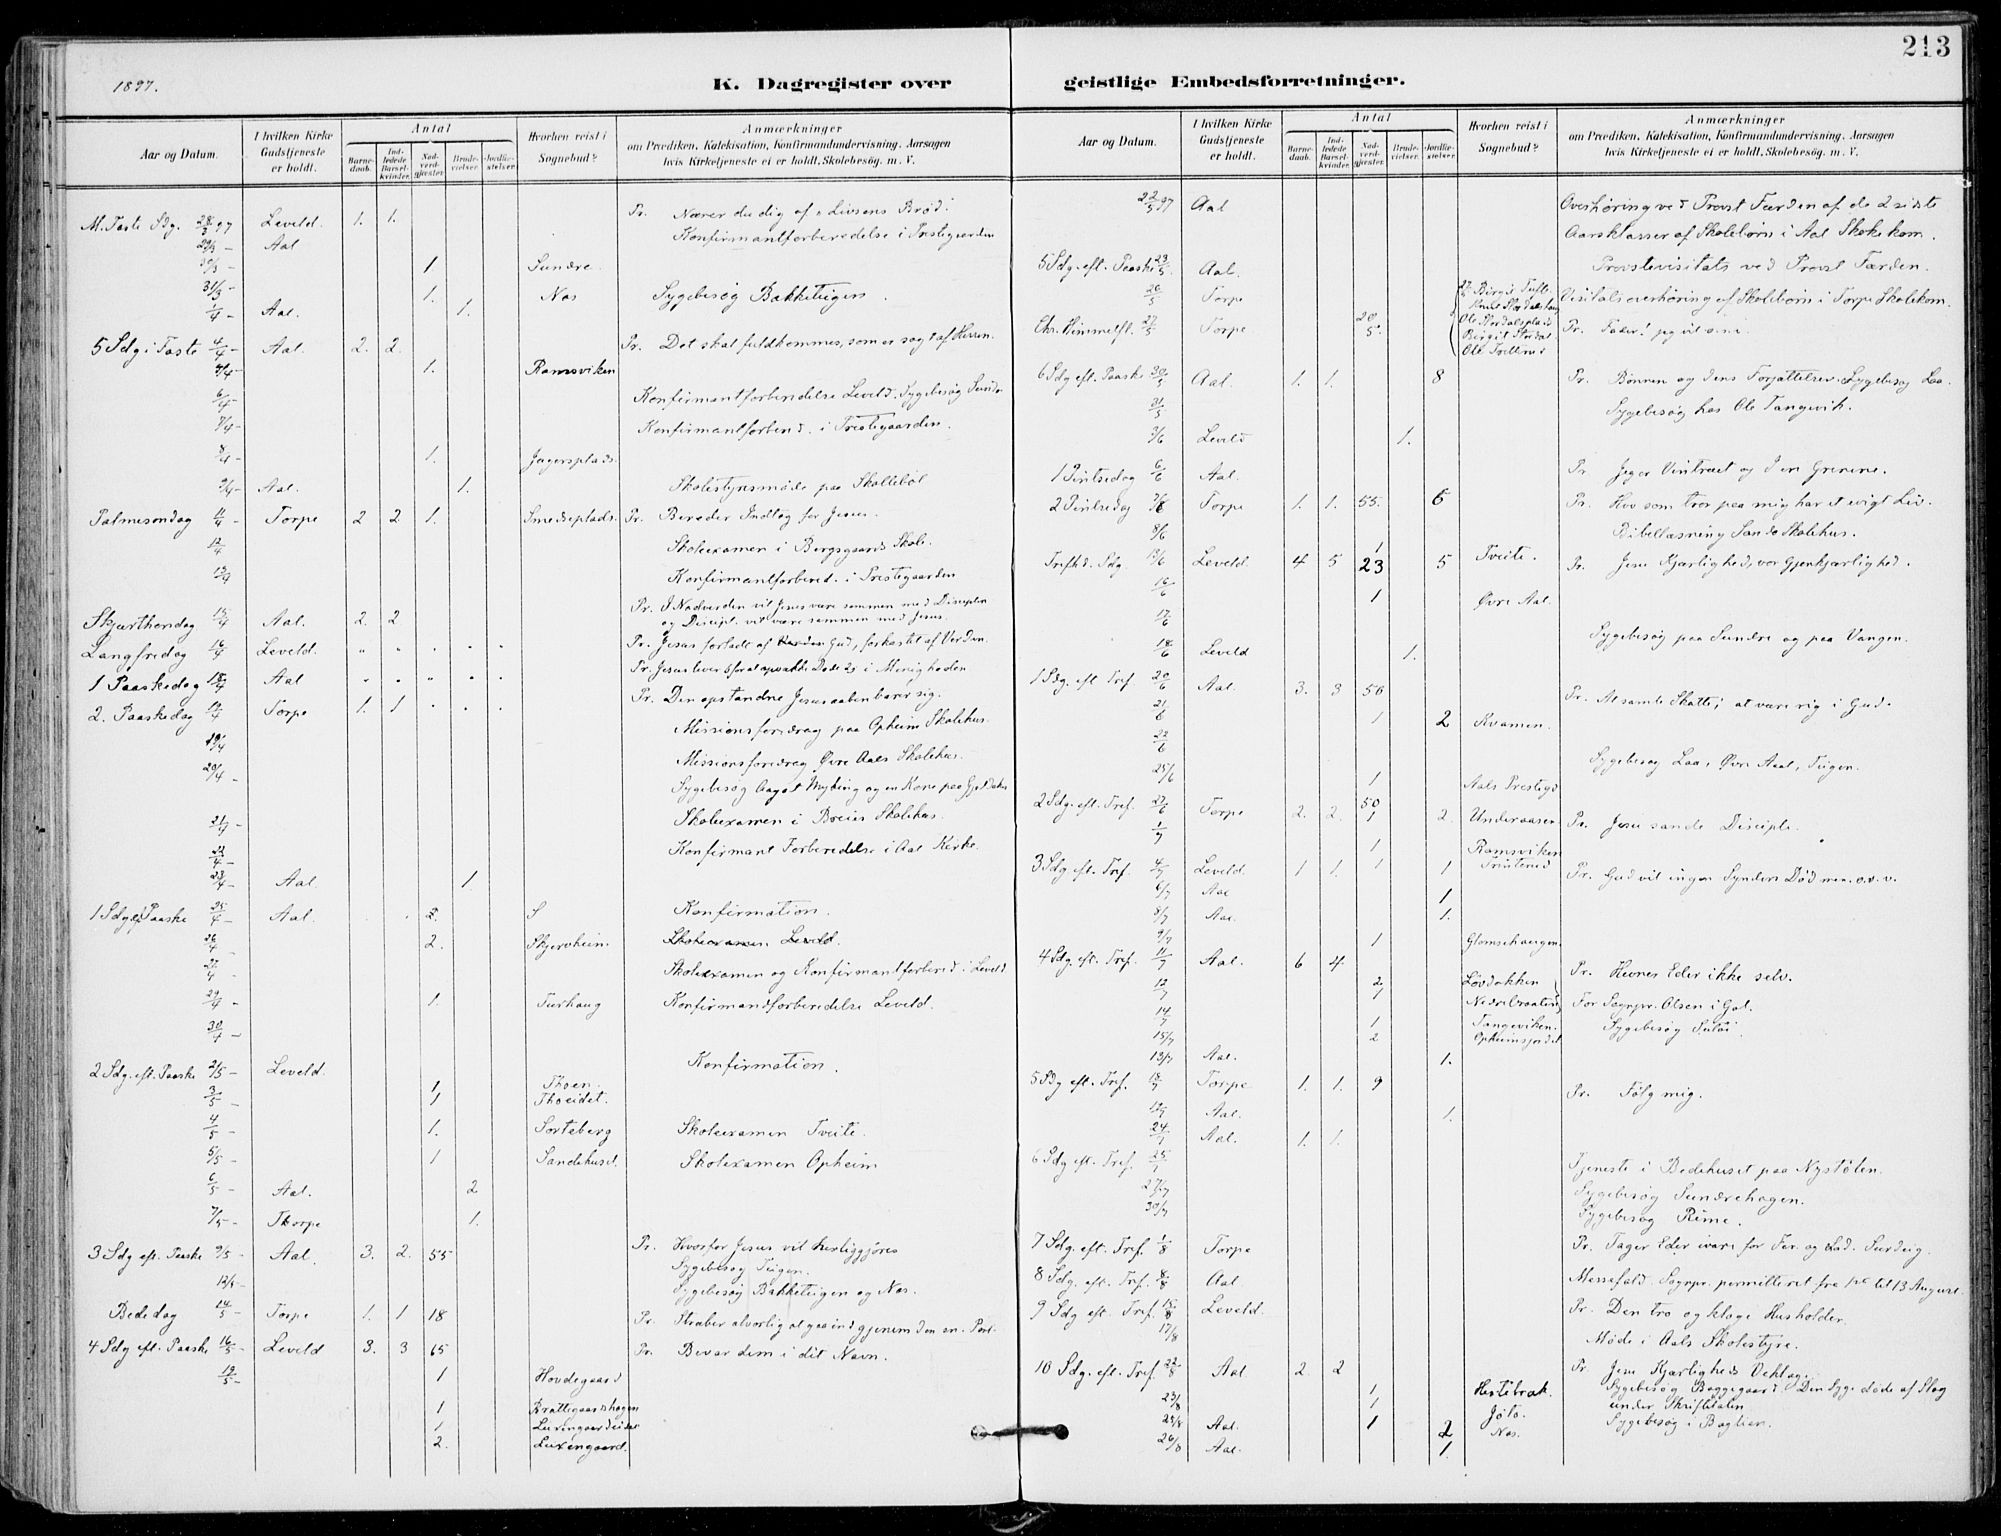 213
1897.
K. Dagregister over geistlige Embedsforretninger.
Aar og Datum. I hvilken Kirke Gudstjeneste er holdt. Antal Barnedaab. Indledede Barselkvinder. Nadverdgjæster. Brudevielser. Jordfæstelser. Hvorhen reist i Sognebud? Anmærkninger om Prædiken, Katekisation, Konfirmandundervisning, Aarsagen hvis Kirketjeneste ei er holdt, Skolebesøg. m. V.
M. Faste Sdg. 28/3 97 Leveld. 1. 1. Pr. Nærer du dig af "Livsens Brød"?
29/3 – Aal Konfirmantforberedelse i Prestegaarden
30/3 – 1 Sundre.
31/3 – 1. Nos Sygebesøg Bakketeigen.
1/4 – Aal. 1.
5 Sdg i Faste 4/4 – Aal. 2. 2. Pr. Det skal fuldkommes, som er sagt af Herren.
1. Ramsviken
6/4 – Konfirmantforberedelse Leveld. Sygebesøg Sundre
7/4 – Konfirmantforbered. i Prestegaarden.
8/4 – 1. Jegersplads.
9/4 – Aal. 1. Skolestyrsmøde paa Skollebøl
Palmesondag 11/4 – Torpe 2 2 1. Smedsplads. Pr. Bereder Indtog for Jesus.
12/4 Skoleexamen i Bergsgaards Skole.
13/4 Konfirmantforbered. i Prestegaarden
Skjærthorsdag 15/4 Aal. 2. 2 Pr. I Nadverden vil Jesus være sammen med Disciplen
og Discipl. vil være sammen med Jesus.
Langfredag 16/4 Leveld. " " " " " Pr. Jesus forladt af Gud, forkastet af Verden.
1 Paaskedag 18/4 Aal " " " " " Pr. Jesus lever
2. Paaskedag 19/4 Torpe 1. 1 " " " Pr. Den opstandne Jesus aabenbarer sig.
Missionsforedrag paa Opheim Skolehus.
19/4 Missionsforedrag Øvre Aals Skolehus.
20/4 – Sygebesøg Aagot Myking og en Kone paa
21/4 – Skoleexamen i Breies Skolehus.
22/4 – Konfirmant Forberedelse i Aal Kirke.
23/4 – Aal. 1
1 Sdg eft Paaske 25/4 – Aal. 2. S Konfirmation.
26/4 – 2. Skjervheim. Skoleexamen Leveld.
27/4 Skolexamen og Konfirmantforbered. i Leveld
29/4 – 1. Turhaug Konfirmandforberedelse Leveld.
30/4 –
2 Sdg. eft. Paaske 2/5 – Leveld. Konfirmation.
3/5 – 1 Thoen.
1 Thoeidet.
4/5 – 1. Sorteberg Skoleexamen Tveite.
5/5 – 1 Sandehuset. Skolexamen Opheim
6/5 – Aal. 2
7/5 – Thorpe 1.
3 Sdg eft. Paaske 9/5 – Aal. 3. 2. 55 Pr. Hvorfor Jesus vil herliggjøres
Sygebesøg Teigen.
12/5 – Sygebesøg Bakketeigen og Nos.
Bededag 14/5 – Torpe 1. 1 18 Pr. Stræber alvorlig at gaa ind gjenem den sn. Port.
4 Sdg eft. Paaske 16/5 – Leveld 3. 3 65 Pr. Bevar dem i dit Navn.
19/5 – 1 Hovdegaard
1 Brattegaardshagen
1
2. Luxengaard.
Aar og Datum. I hvilken Kirke Gudstjeneste er holdt. Antal Barnedaab. Indledede Barselkvinder. Nadverdgjæster. Brudevielser. Jordfæstelser. Hvorhen reist i Sognebud? Anmærkninger om Prædiken, Katekisation, Konfirmandundervisning, Aarsagen hvis Kirketjeneste ei er holdt, Skolebesøg. m. V.
22/5 97 Aal Overhøring ved Provst Færden af de 2 sidste
Aarsklasser af Skolebørn i Aal Skolekom.
5 Sdg. eft. Paaske 23/5 Aal. Provstevisitats ved Provst Færden.
26/5 Torpe Visitatsoverhøring af Skolebørn i Torpe Skolekom.
Chr. Himmelfl. 27/5 Torpe 20 5. Birgit Ole Birgit Ole Pr. Fader! jeg vil
6 Sdg eft. Paaske 30/5 Aal. 1. 1. 8 Pr. Bønnen og dens Forjættelser. Sygebesøg Laa.
31/5 Sygebesøg hos Ole Tangevik.
3/6 Leveld 1.
1 Pintsedag 6/6 Aal. Pr. Jeg er Vintræet og I ere Grenene.
2 Pintsedag 7/6 Torpe 1. 1. 55. 6 Pr. Hvo som tror paa mig har et evigt Liv.
8/6 1 Bibellæsning Sande Skolehus.
Trefhd. Sdg. 13/6 Leveld. 4 5 23 5 Tveite. Pr. Jesu Kjærlighed, vor Gjenkjærlighed.
16/6 1 Øvre Aal.
17/6 Sygebesøg paa Sundre og paa Vangen.
18/6 Leveld 1.
1 Sdg. eft Tref. 20/6 Aal. 3. 3 50 Pr. At samle Skatte; at være rig i Gud.
21/6 1 2 Kvamen.
22/6 Sygebesøg Laa, Øvre Aal, Teigen.
25/6 1 Aals Prestegd
2 Sdg. eft. Tref. 27/6 Torpe 2. 2. 50 1 2. Underaasen. Pr. Jesu sande Disciple.
1/7 1 Ramsviken
3 Sdg eft. Tref. 4/7 Leveld. 1 1. 1 1 Pr. Gud vil ingen Synders Død men. o.v.v.
6/7 Aal 1
8/7 Aal. 1.
9/7 1 Glomsehaugen
4 Sdg. eft. Tref. 11/7 Aal. 6 4 Pr. Hevnes Eder ikke selv.
12/7 2 1 Løvbakken For Sogpr. Olsen i Gol.
14/7 1 Tangeviken. Sygebesøg
15/7 2 Opheimsjordet
13/7 Aal. 1.
5 Sdg eft. Tref. 18/7 Torpe 1. 1. 9 Pr. Følg mig.
Aal. 1.
24/7 Aal. 1. 1.
6 Sdg eft. Tref. 25/7 Tjeneste i Bedehuset paa Nystølen.
27/7 Sygebesøg Sundrehagen.
30/7 Sygebesøg Rime.
7 Sdg. eft. Tref. 1/8 Torpe Pr. Tager Eder ivare for Far. og Sad. Surdeig.
8 Sdg. eft. Tref. 8/8 Aal. Messefald. Sogpr. permitteret fra 1ste til 13 August.
9 Sdg eft. Tref. 15/8 Leveld. Pr. Den tro og kloge Husholder.
17/8 Møde i Aals Skolestyre.
10 Sdg. eft. Tref. 22/8 Aal 2. 2 Pr. Jesu Kjærligheds Veklag.
23/8 1 1 Hestebrak. Sygebesøg Baggegaard. Den Syge døde af Slag
under Skriftetalen
25/8 Aal. 1 2 Nos. Sygebesøg i
26/8 Aal. 1.